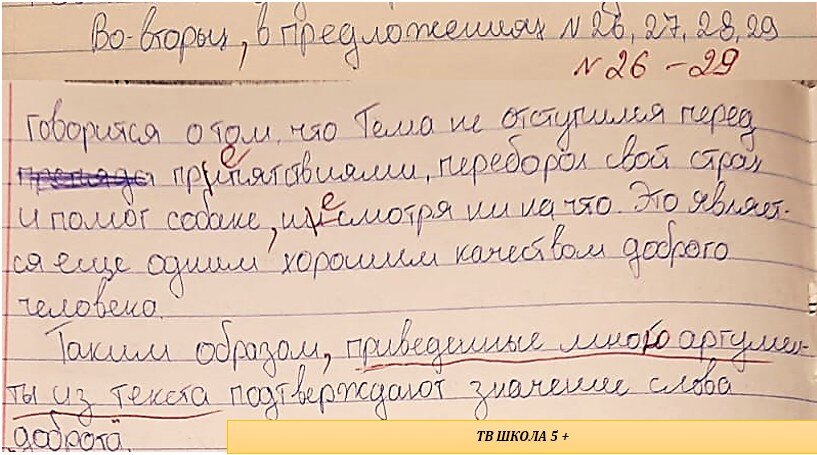 Во-вторых, в предложениях N 26, 27, 28, 29
N 26 - 29
говорится о том, что Тема не отступился перед
припятствиями, переборол свой страх
е
и помог собаке, нисмотря ни на что. Это являет-
е
ся еще одним хорошим качеством доброго
человека.
Таким образом, приведенные мною аргумен-
ты из текста подтверждают значение слова
„доброта".
ТВ ШКОЛА 5 +